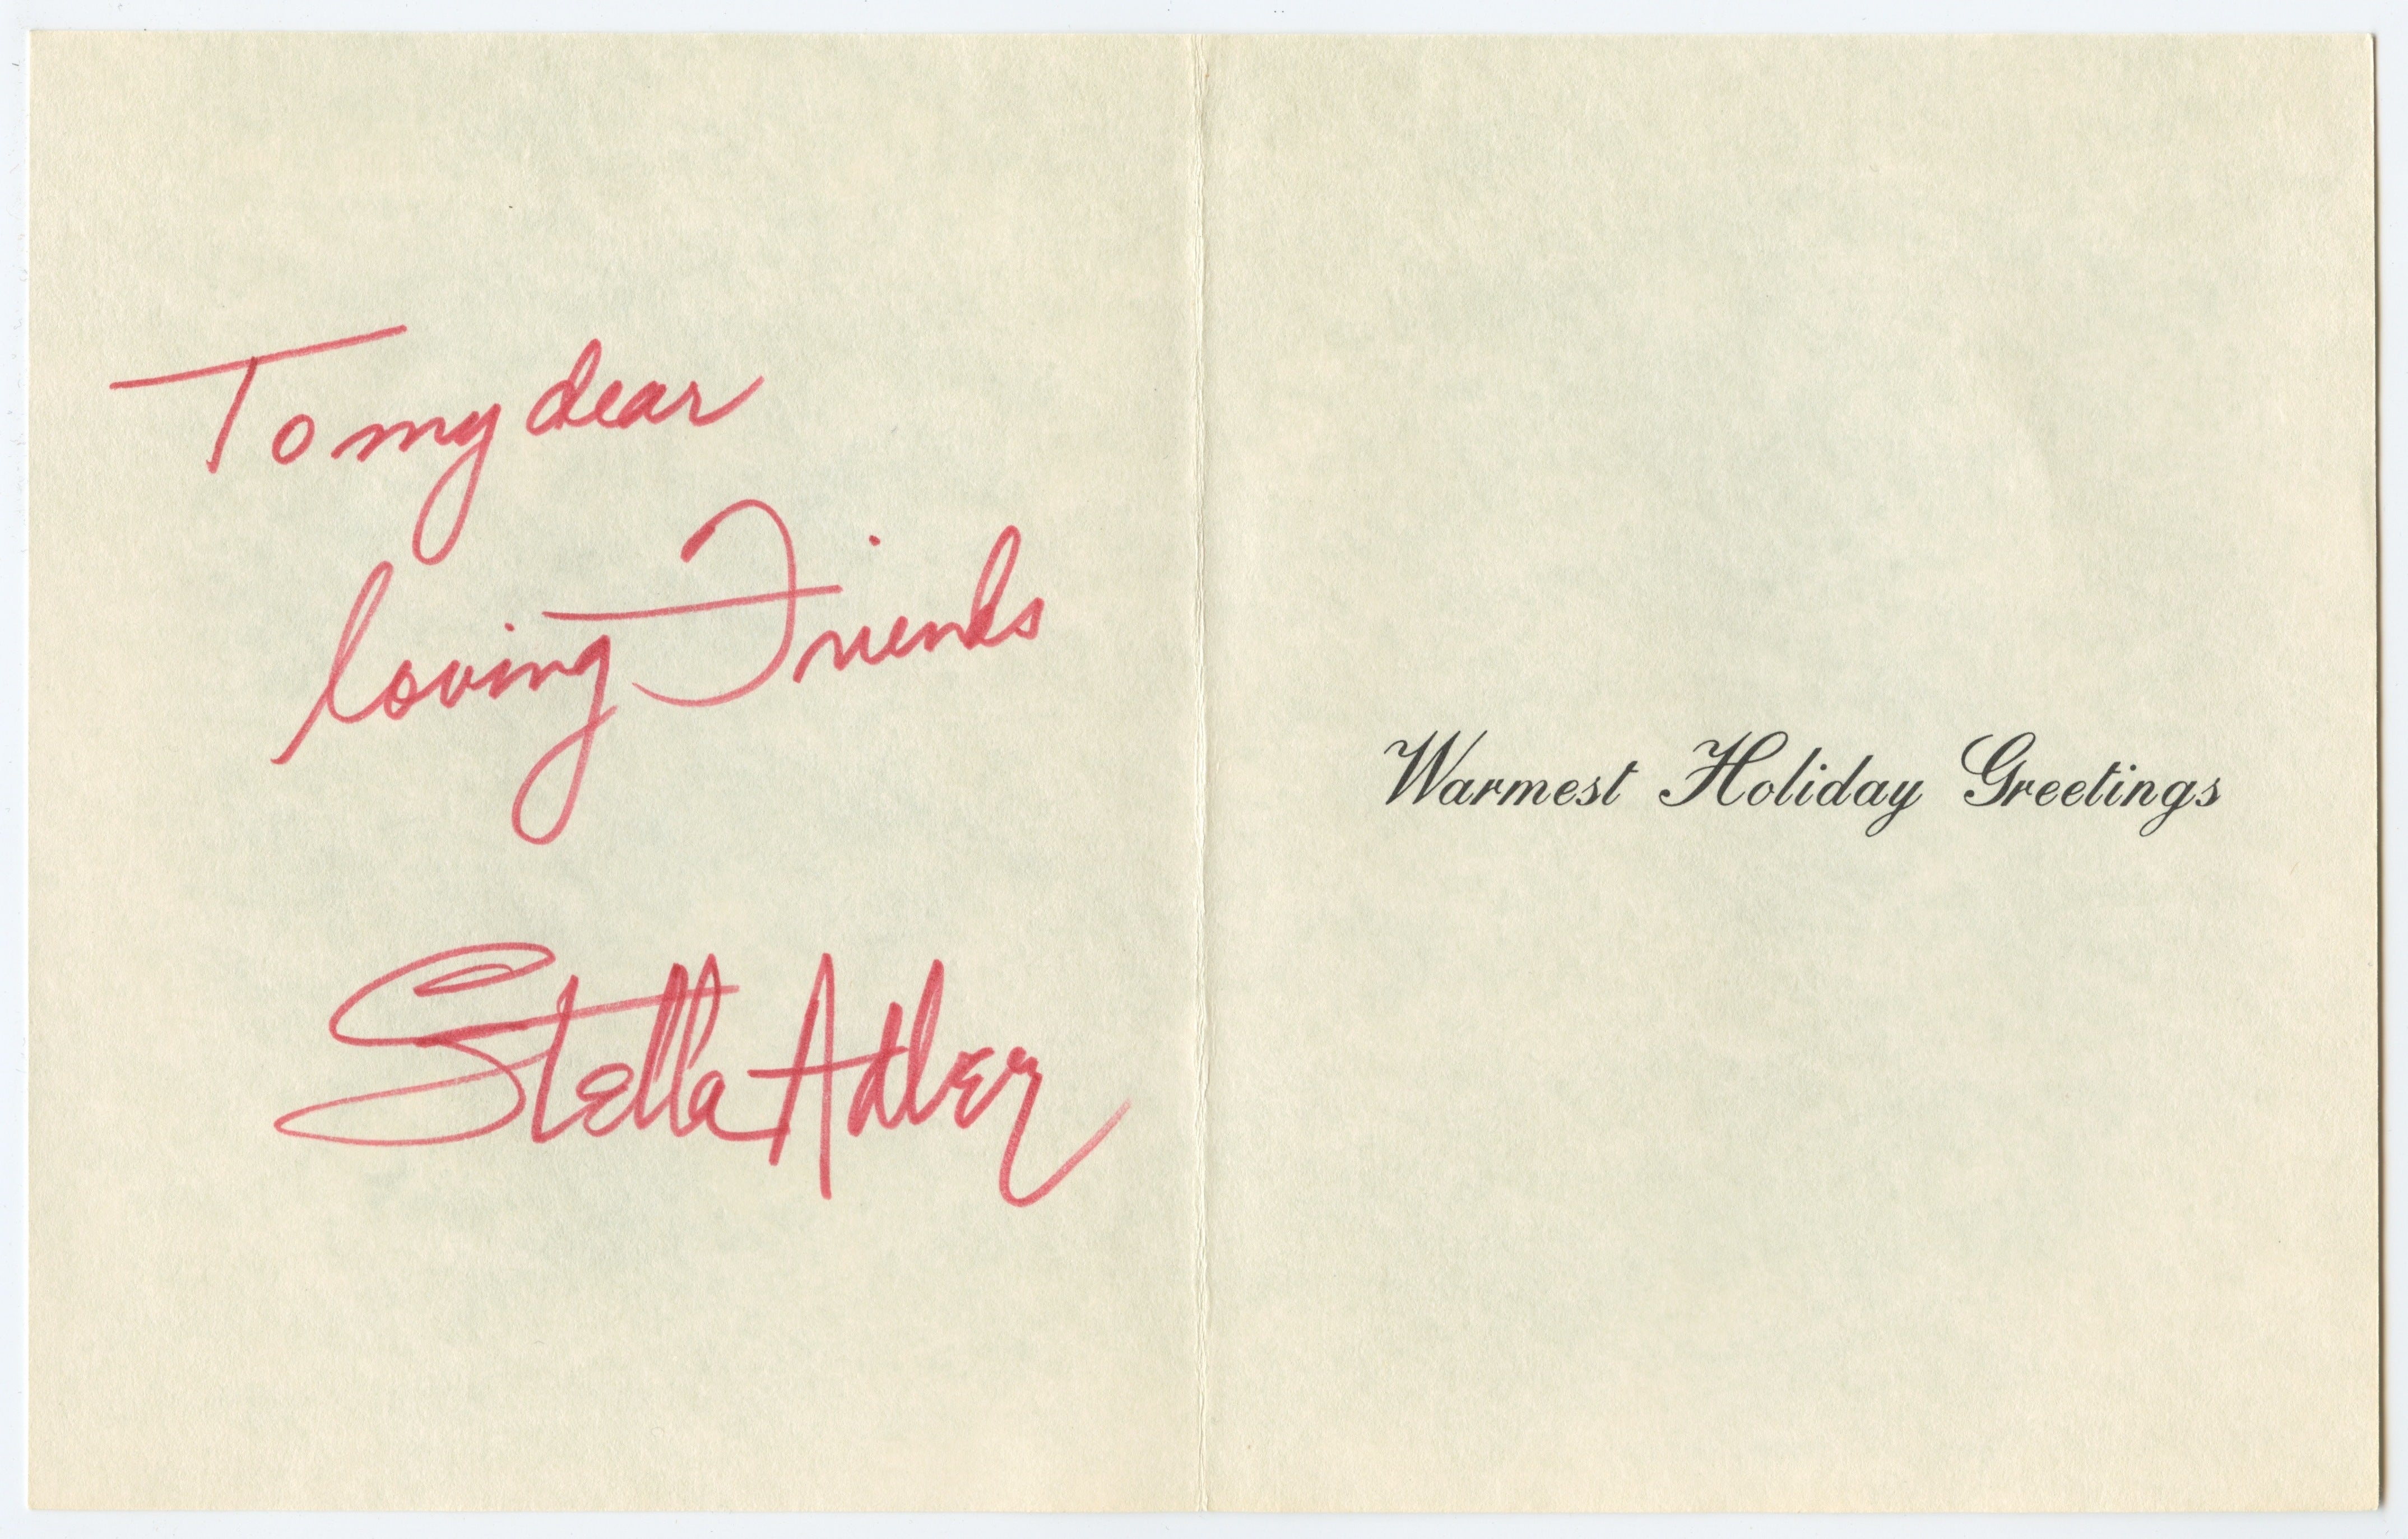 To my dear
loving Friends
Stella Adler
Warmest Holiday Greetings